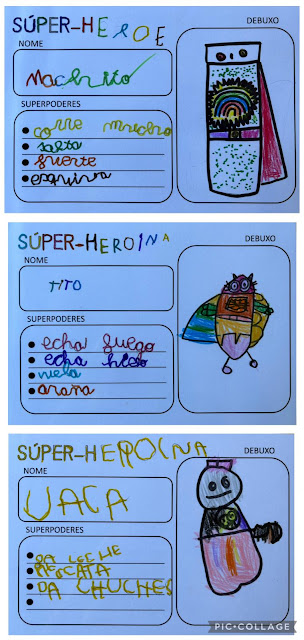 SÚPER-HEROE
DEBUXO
NOME
Machito
SUPERPODERES
corre mucho
salta
fuerte
esquiva
SÚPER-HEROINA
DEBUXO
NOME
TITO
SUPERPODERES
echa fuego
echa hielo
vuela
araña
SÚPER-HEROINA
DEBUXO
NOME
VACA
SUPERPODERES
DA LECHE
RESCATA
DA CHUCHES
PIC•COLLAGE